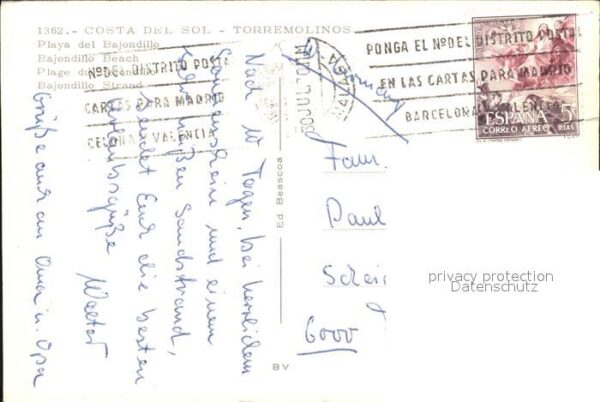 1362.- COSTA DEL SOL - TORREMOLINOS
Playa del Bajondillo
Bajondillo Beach
Plage du
Bajondillo Strand
PONGA EL Nº DEL DISTRITO POSTAL
EN LAS CARTAS PARA MADRID
BARCELONA VALENCIA
Nº DEL DISTRITO POSTAL
CARTAS PARA MADRID
CELONA VALENCIA
ESPAÑA
CORREO AEREO
5
PTAS
Nach 10 Tagen, bei herrlichem
Sonnenschein und einem
heißen Sandstrand,
sendet Euch die besten
Urlaubsgrüße
Walter
Grüße auch an Oma u. Opa
Fam.
Paul
6000
Ed. Beascoa
BV
privacy protection
Datenschutz